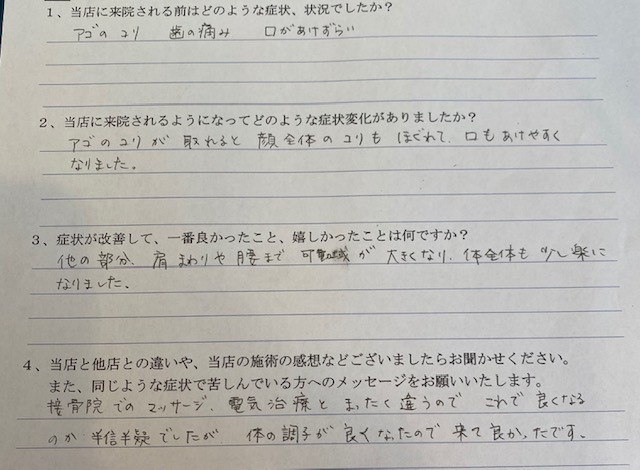 1、当店に来院される前はどのような症状、状況でしたか？
アゴのコリ　歯の痛み　口があけずらい
2、当店に来院されるようになってどのような症状変化がありましたか？
アゴのコリが取れると顔全体のコリもほぐれて、口もあけやすく
なりました。
3、症状が改善して、一番良かったこと、嬉しかったことは何ですか？
他の部分、肩まわりや腰まで可動域が大きくなり、体全体も少し楽に
なりました、
4、当店と他店との違いや、当店の施術の感想などございましたらお聞かせください。
また、同じような症状で苦しんでいる方へのメッセージをお願いいたします。
接骨院でのマッサージ、電気治療とまったく違うので　これで良くなる
のか半信半疑でしたが　体の調子が良くなったので来て良かったです、